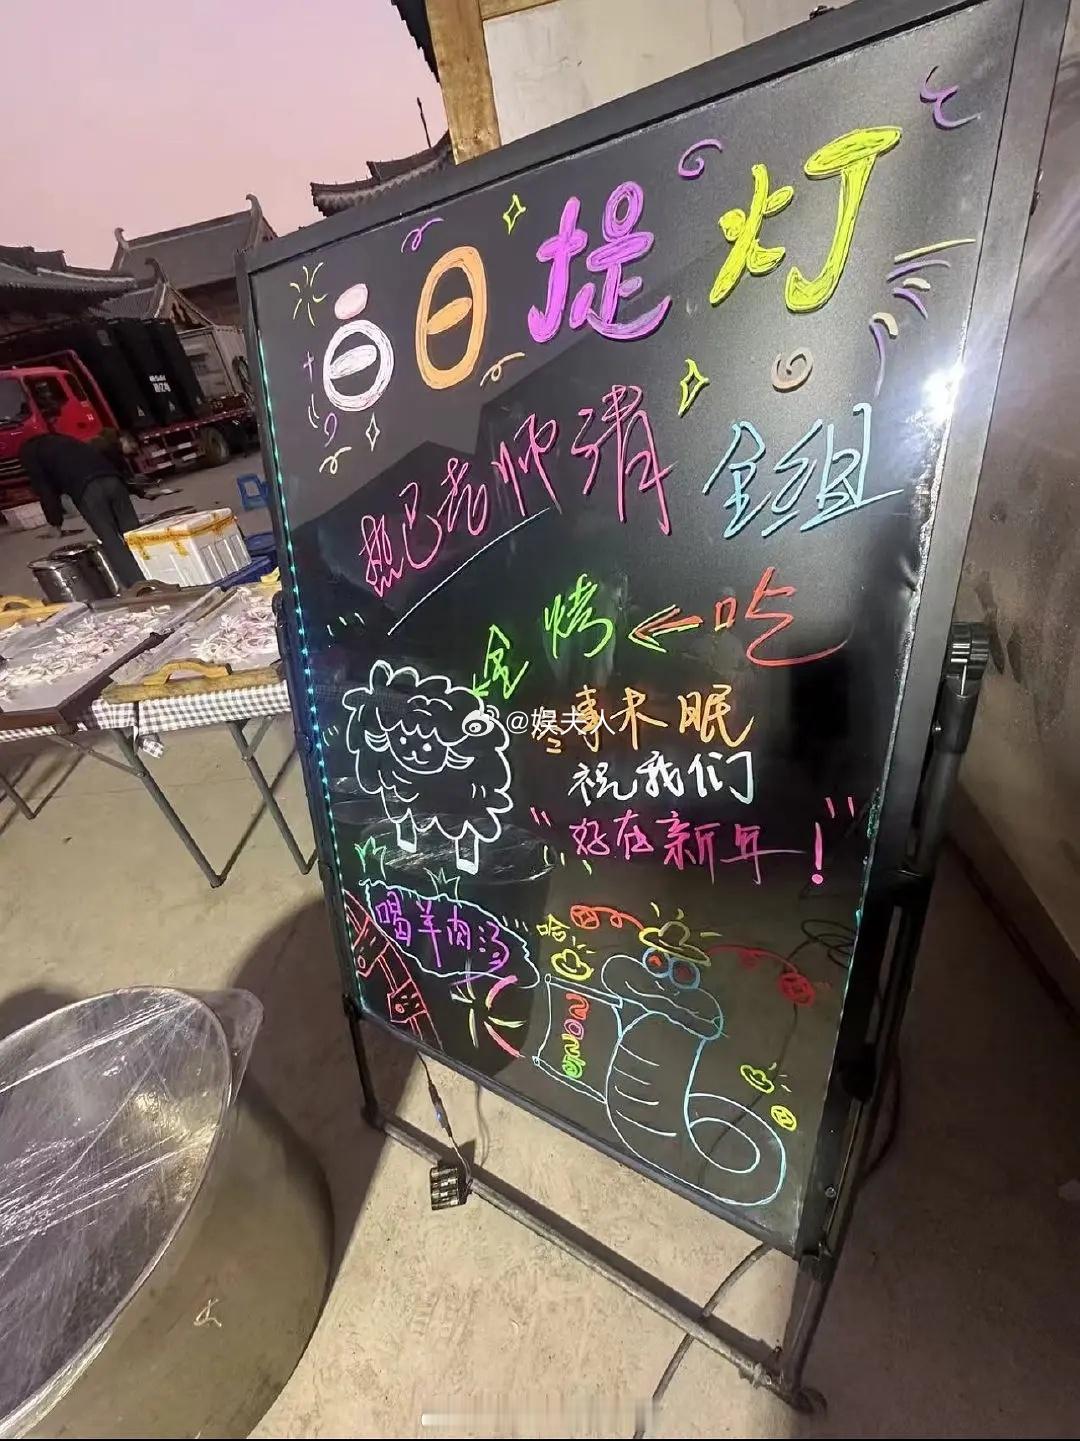 白日提灯
热巴老师请全组
吃←烤全
@娱夫人
木眠
祝我们
好在新年！
喝羊肉汤
哈
2025